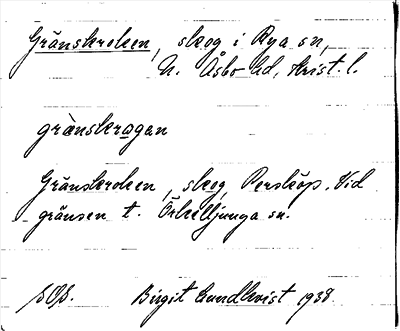 Gränskroken, skog i Rya sn,
N. Åsbo hd, Krist. l.
grànskrogan
Gränskroken, skog, Perstorp. Vid
gränsen t. Örkelljunga sn.
Birgit Lundkvist 1938